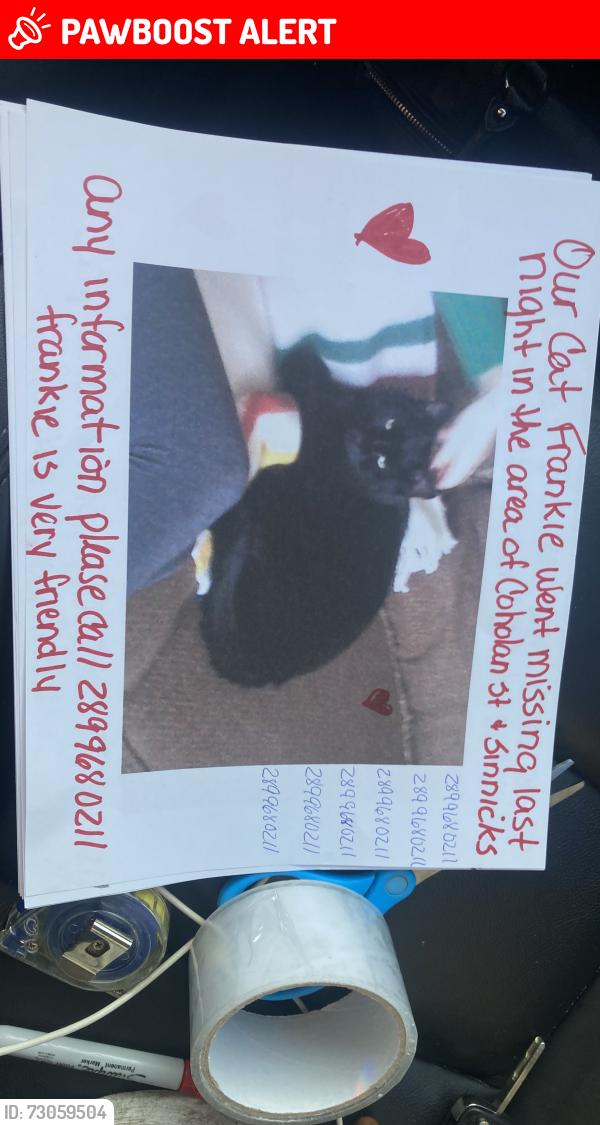 PAWBOOST ALERT
Our Cat Frankie went missing last
night in the area of Coholan st & Sinnicks
2899680211
2899680211
2899680211
2899680211
2899680211
2899680211
any information please call 2899680211
frankie is very friendly
Permanent Marker
ID: 73059504